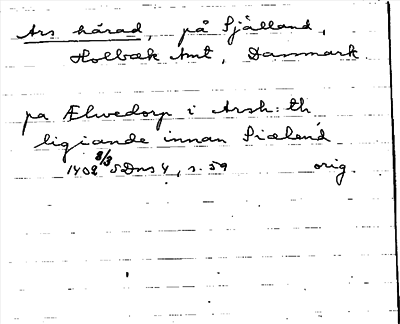 Ars härad, på Sjålland,
Holbæk Amt, Danmark
pa Ælwedorp i Arsh: th
ligiande innan Siælend
1402 8/3 SDns 4, s. 59 orig.